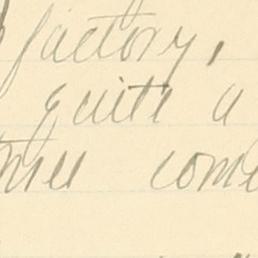 factory,
quite a
come